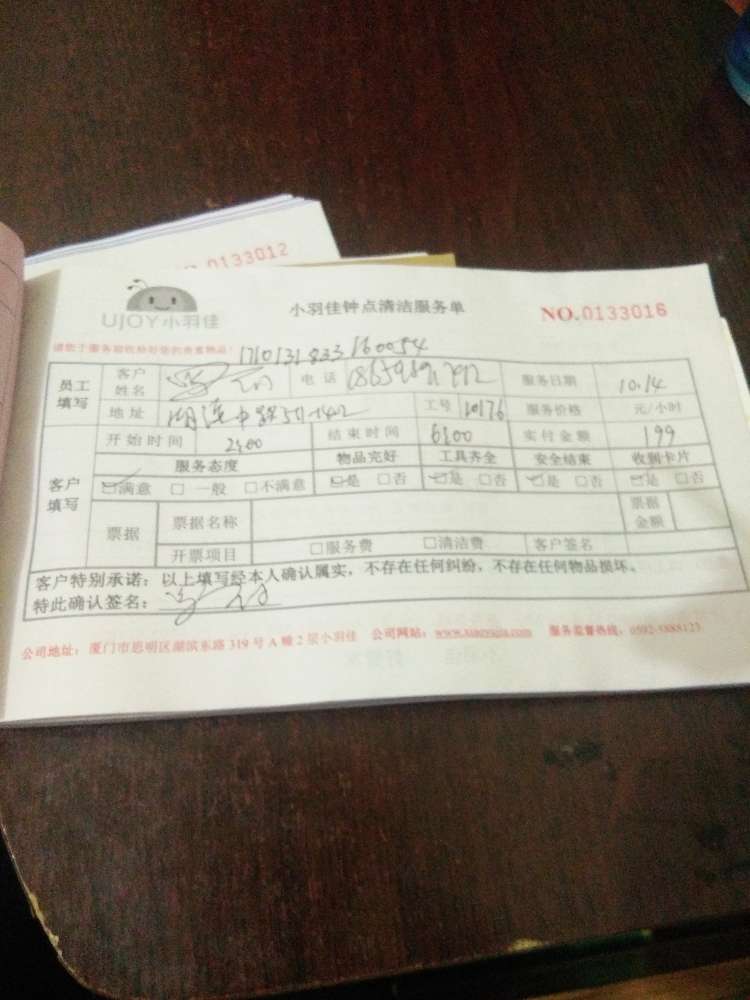 NO.0133012
UJOY小羽佳
小羽佳钟点清洁服务单
NO.0133016
请您于服务前收拾好您的贵重物品!
1710131833160054
员工填写
客户姓名
电话
服务日期 10.14
地址
工号 10176
服务价格 元/小时
开始时间 2:00
结束时间 6:00
实付金额 199
客户填写
服务态度 物品完好 工具齐全 安全结束 收到卡片
☑满意 □一般 □不满意 ☑是 □否 ☑是 □否 ☑是 □否 ☑是 □否
票据
票据名称
票据金额
开票项目 □服务费 □清洁费 客户签名
客户特别承诺:以上填写经本人确认属实,不存在任何纠纷,不存在任何物品损坏。
特此确认签名:
公司地址:厦门市思明区湖滨东路319号A幢2层小羽佳 公司网站: 服务监督热线:0592-5888123